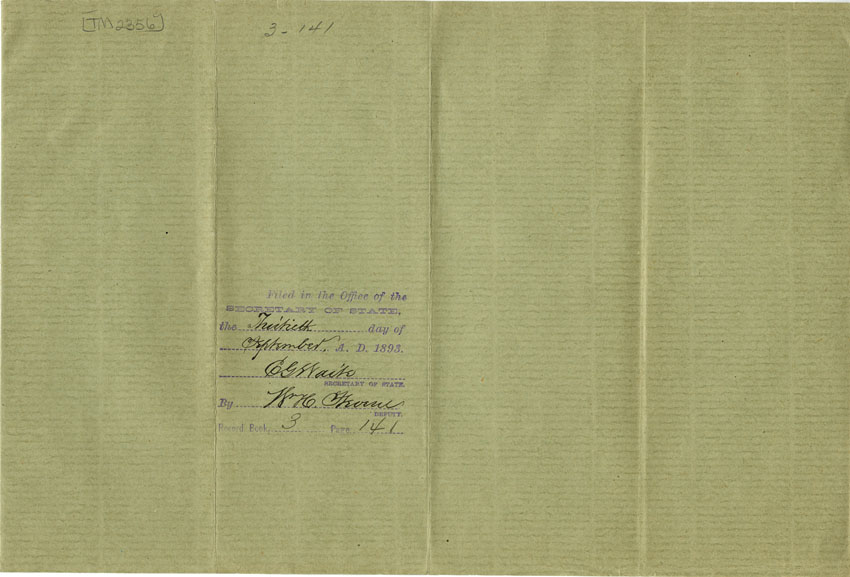 [TM2356]
3-141
Filed in the Office of the
SECRETARY OF STATE,
the Thirtieth day of
September, A. D. 1893.
E G Waite
SECRETARY OF STATE.
By W. H.
DEPUTY.
Record Book, 3 Page, 141